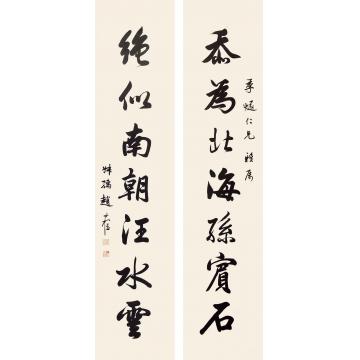 忝為北海孫賓石
仁兄 雅屬
絕似南朝汪水雲
叔孺趙